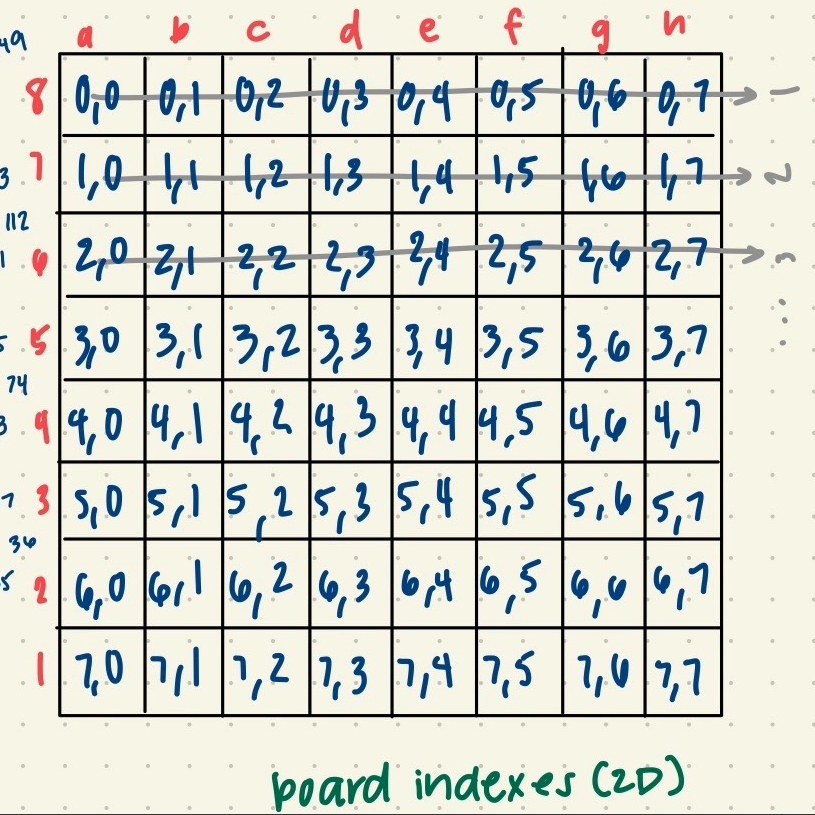 49
a b c d e f g h
8 0,0 0,1 0,2 0,3 0,4 0,5 0,6 0,7 1
7 1,0 1,1 1,2 1,3 1,4 1,5 1,6 1,7 2
3
112
6 2,0 2,1 2,2 2,3 2,4 2,5 2,6 2,7
1
5 3,0 3,1 3,2 3,3 3,4 3,5 3,6 3,7
5
74
4 4,0 4,1 4,2 4,3 4,4 4,5 4,6 4,7
3
3 5,0 5,1 5,2 5,3 5,4 5,5 5,6 5,7
7
36
2 6,0 6,1 6,2 6,3 6,4 6,5 6,6 6,7
5
1 7,0 7,1 7,2 7,3 7,4 7,5 7,6 7,7
board indexes (2D)